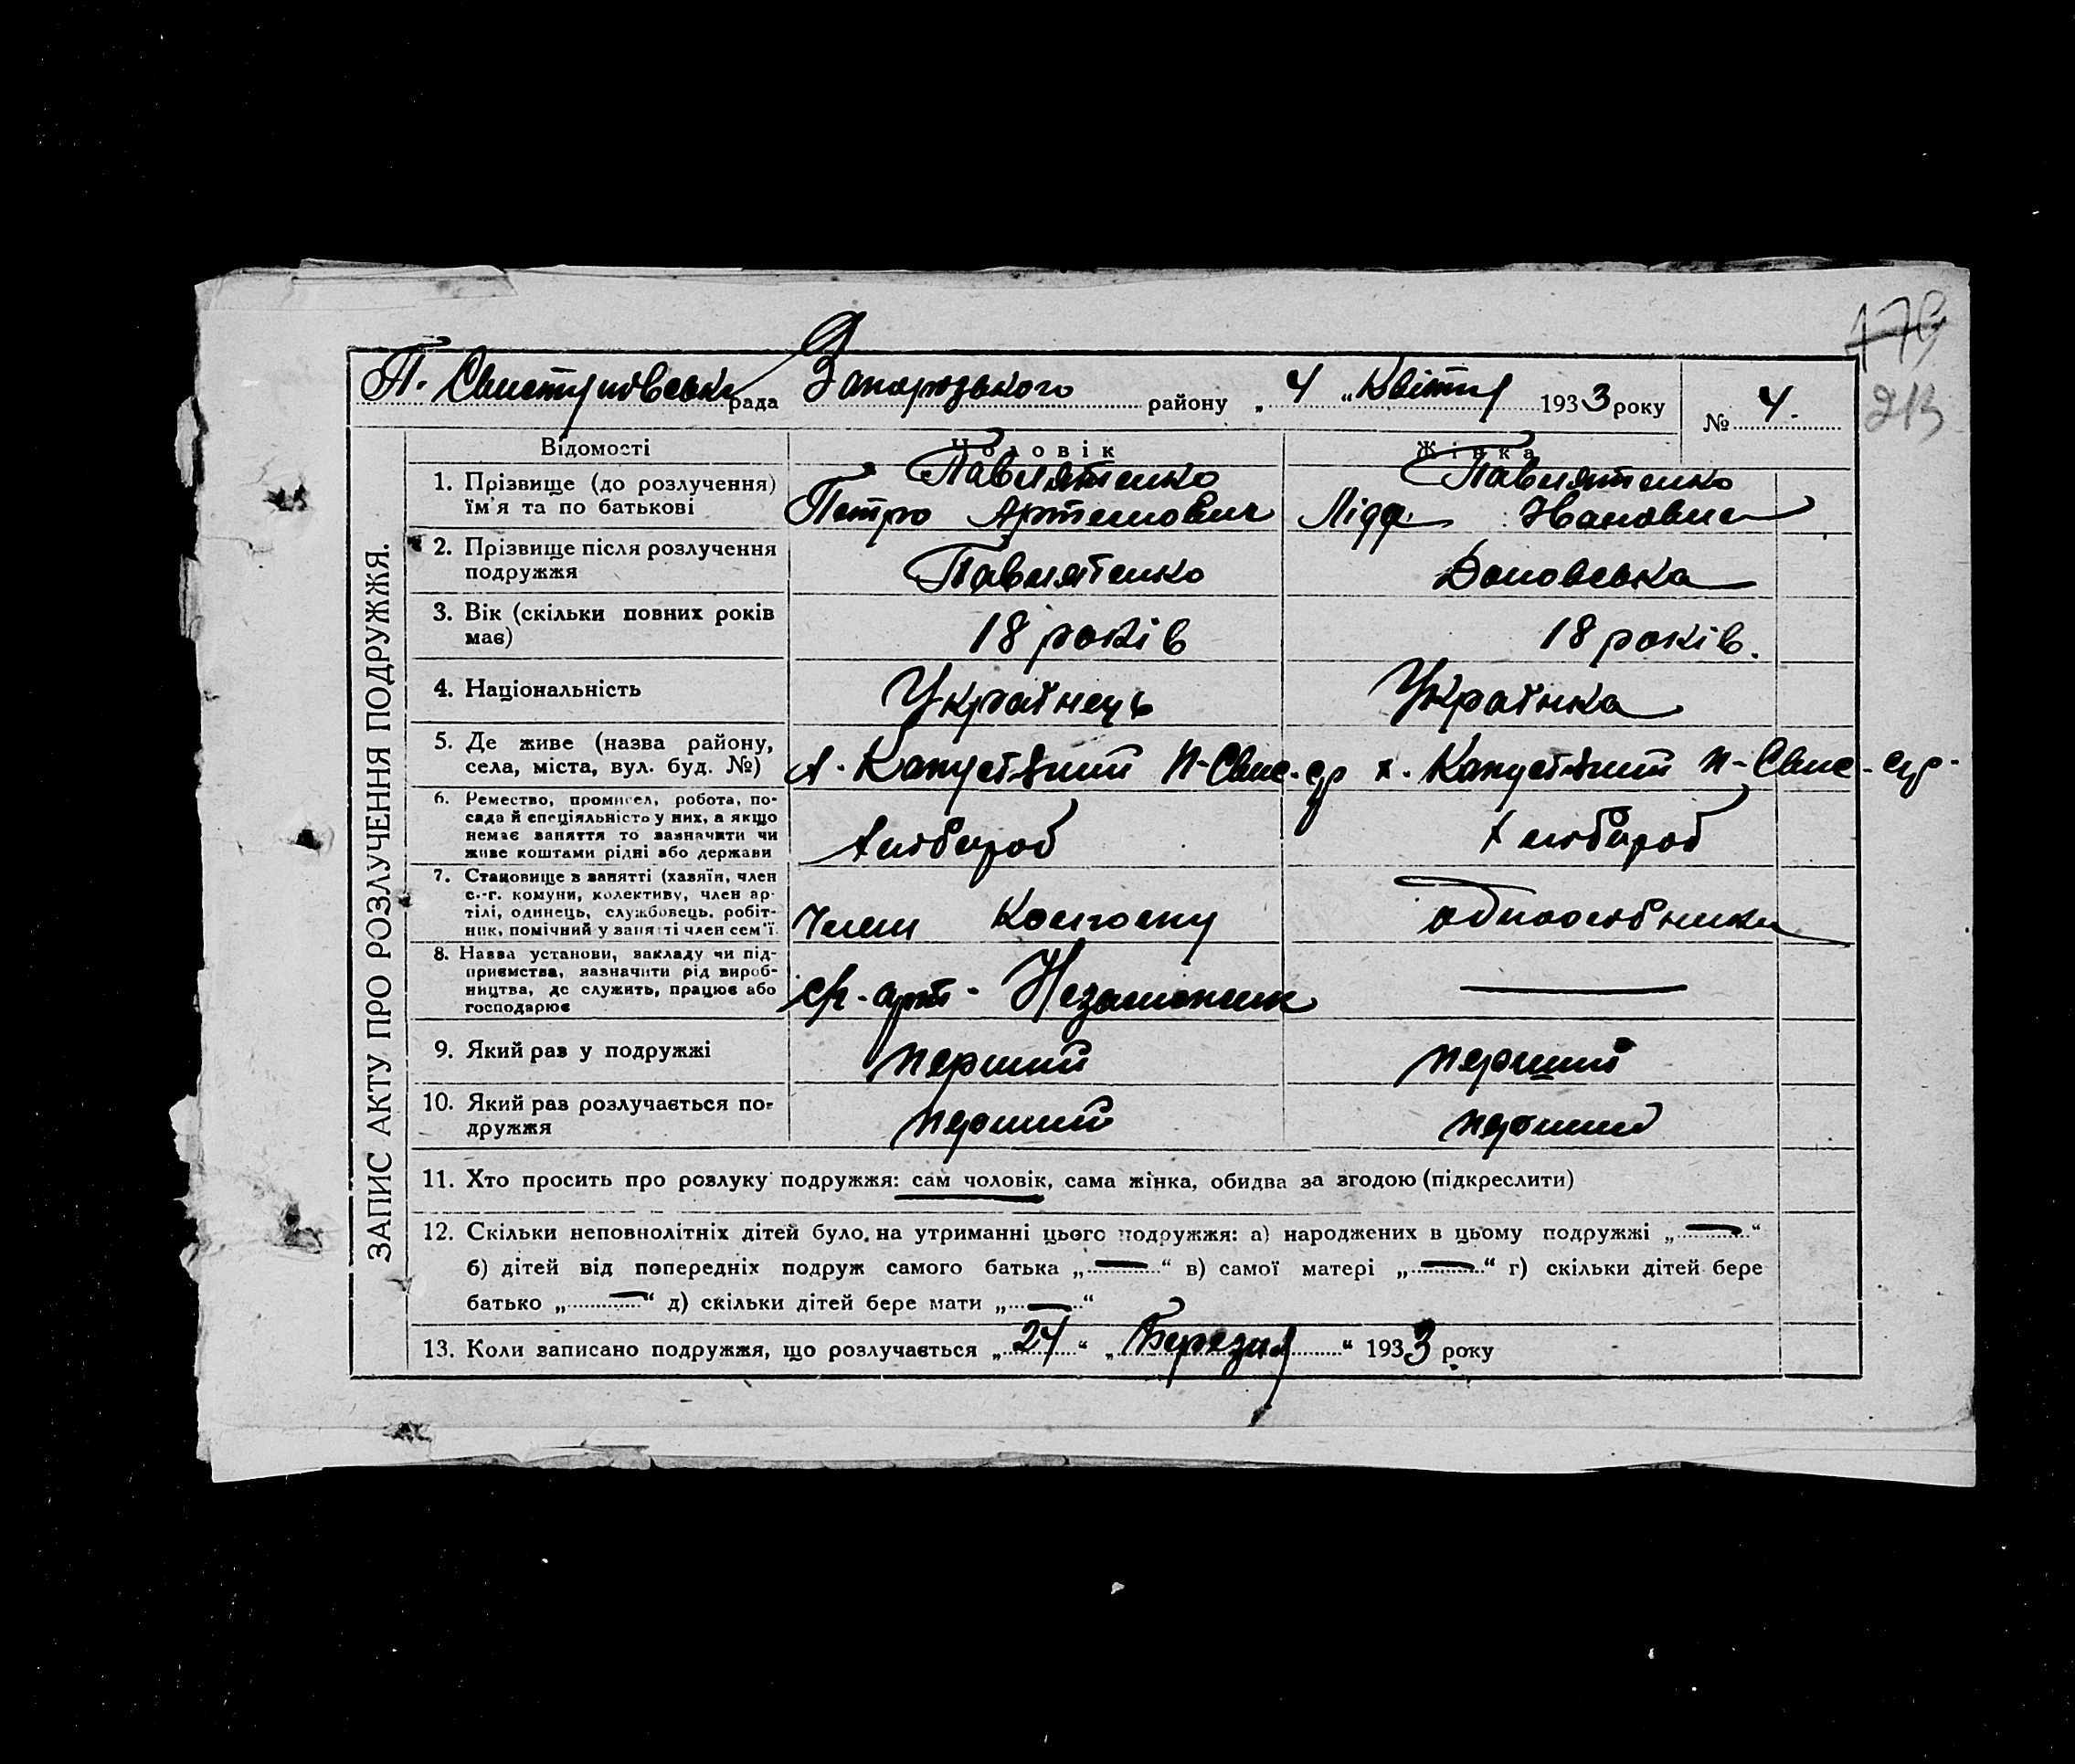 179
213
П. Свистуновська рада Запорізького району „ 4 " Квітня 1933 року № 4.
ЗАПИС АКТУ ПРО РОЗЛУЧЕННЯ ПОДРУЖЖЯ.
Відомості Чоловік Жінка
1. Прізвище (до розлучення) Павлятенко Павлятенко
їм'я та по батькові Петро Артемович Ліда Івановна
2. Прізвище після розлучення
подружжя Павлятенко
3. Вік (скільки повних років
має) 18 років 18 років.
4. Національність Українець Українка
5. Де живе (назва району,
села, міста, вул. буд. №) х. Капустяний П-Свис. ср х. Капустяний П-Свис. с/р.
6. Ремество, промисел, робота, по-
сада й спеціяльність у них, а якщо
немає заняття то зазначити чи
живе коштами рідні або держави Хлібороб Хлібороб
7. Становище в занятті (хазяїн, член
с.-г. комуни, колективу, член ар-
тілі, одинець, службовець, робіт-
ник, помічний у занятті член сем'ї. Член колгоспу одноосібника
8. Назва установи, закладу чи під-
приємства, зазначити рід вироб-
ництва, де служить, працює або
господарює арт. Незаможник —
9. Який раз у подружжі перший перший
10. Який раз розлучається по-
дружжя перший перший
11. Хто просить про розлуку подружжя: сам чоловік, сама жінка, обидва за згодою (підкреслити)
12. Скільки неповнолітніх дітей було на утриманні цього подружжя: а) народжених в цьому подружжі „—"
б) дітей від попередніх подруж самого батька „—" в) самої матері „—" г) скільки дітей бере
батько „—" д) скільки дітей бере мати „—"
13. Коли записано подружжя, що розлучається „24" „Березня" 1933 року